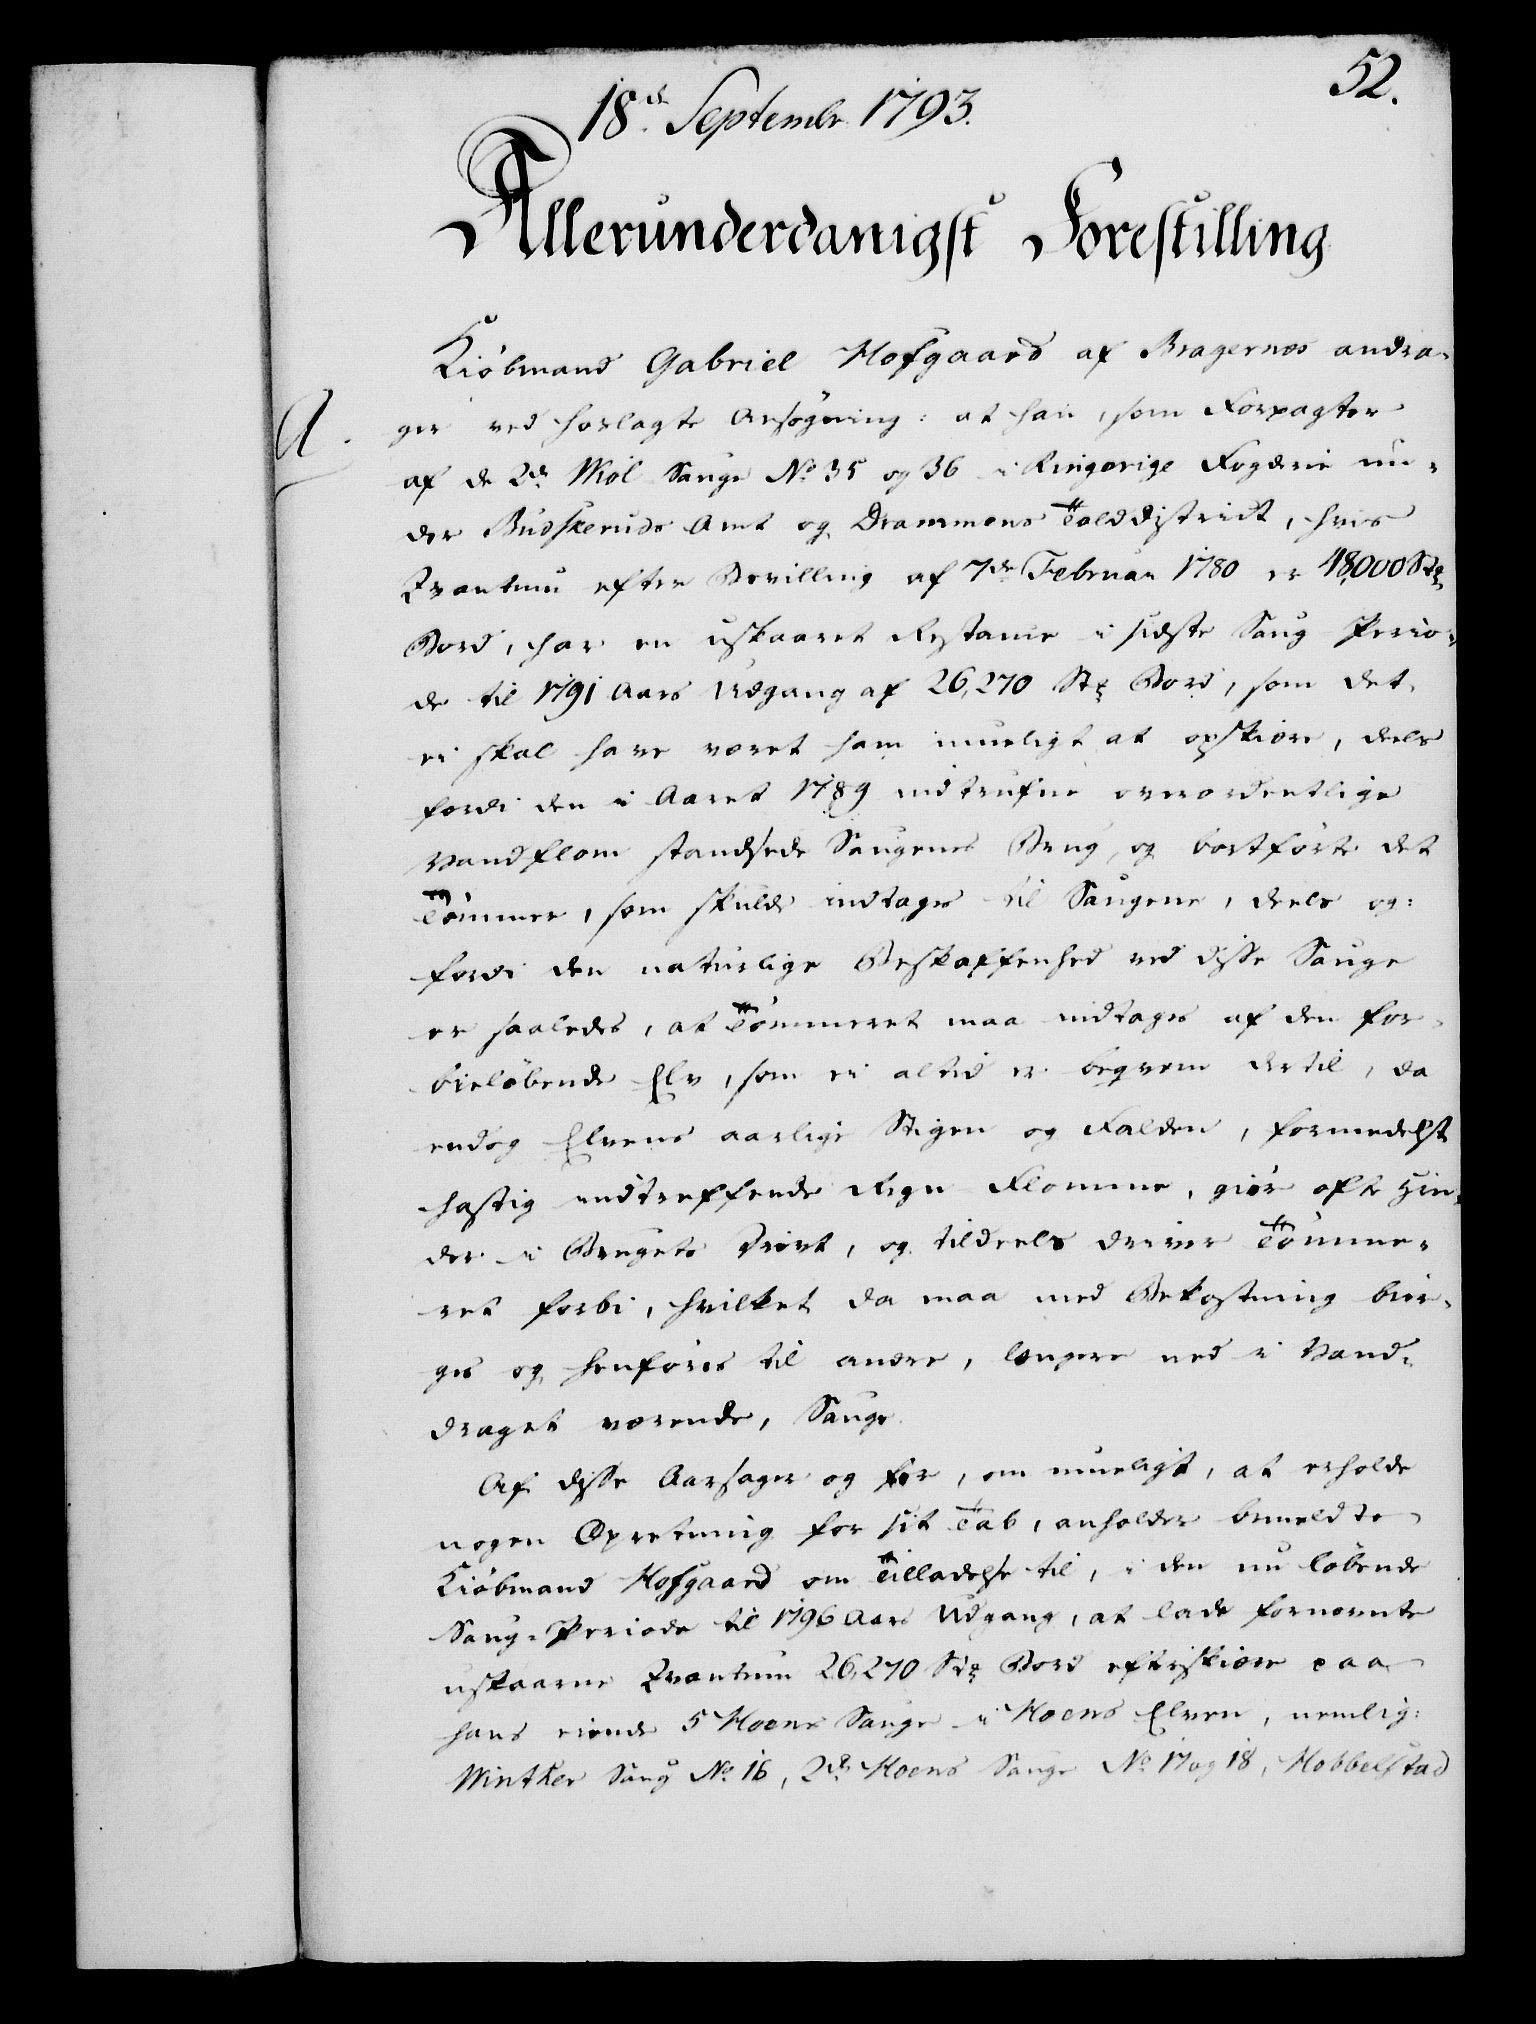 52.
18de Septembr 1793.
Allerunderdanigst Forestilling
Kiöbmand Gabriel Hofgaard af Bragernæs andra-
A.
ger ved hoslagte Ansøgning: at han, som Forpagter
af de 2de Miöl Sauge No 35 og 36 i Ringerige Fogderie un-
der Budskeruds Amt og Drammens Tolddistrict, hvis
Qvantum efter Bevilling af 7de Februar 1780 er 48,000 Stk
Bord, har en uskaaret Restance i sidste Saug-Perio-
de til 1791 Aars Udgang af 26,270 Stk Bord, som det
ei skal have været ham mueligt at opskiære, deels
fordi den i Aaret 1789 indtrufne overordentlige
Vandflom standsede Saugenes Brug, og bortförte det
Tömmer, som skulde indtages til Saugene, deels og:
fordi den naturlige Beskaffenhed ved disse Sauge
er saaledes, at Tömmeret maa indtages af den for-
bieløbende Elv, som ei altid er beqvem dertil, da
endog Elvens aarlige Stigen og Falden, formedelst
hastig indtreffende Regn-Flomme, giör ofte Hin-
der i Brugets Drivt, og tildeels driver Tömme-
ret forbi, hvilket da maa med Bekostning bier-
ges og henföres til andre, længere ned i Vand-
draget værende, Sauge.
Af disse Aarsager og for, om mueligt, at erholde
nogen Opretning for sit Tab, anholder bemeldte
Kiöbmand Hofgaard om Tilladelse til, i den nu löbende
Saug-Periode til 1796 Aars Udgang, at lade fornevnte
uskaarne Qvantum 26,270 Stk Bord efterskiære paa
hans eiende 5 Hoens Sauge i Hoens Elven, nemlig:
Winther Saug No 16, 2de Hoens Sauge No 17 og 18, Hobbelstad